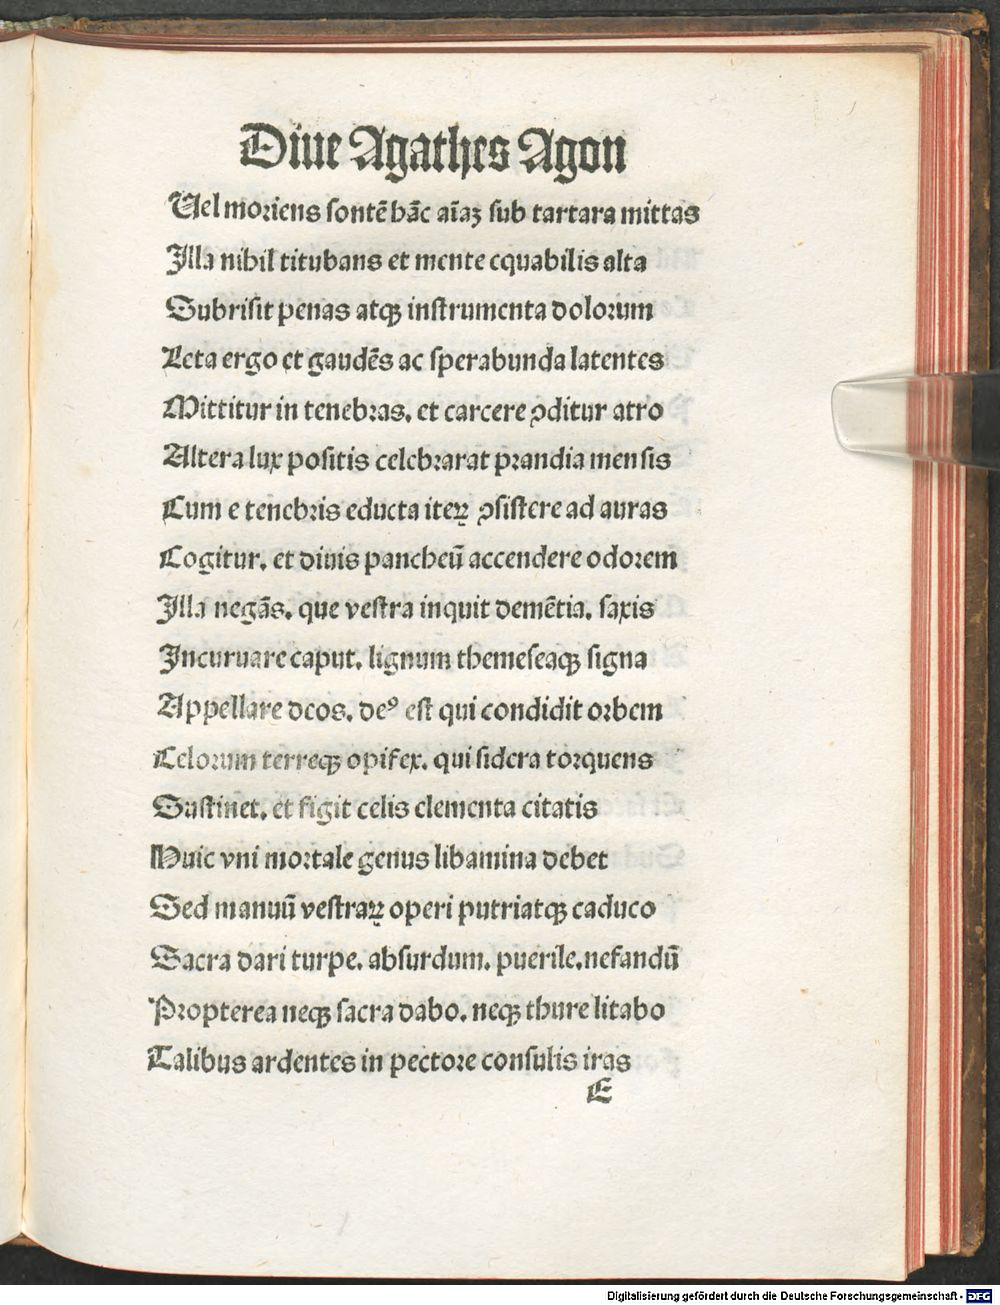 Diue Agathes Agon
Uel moriens sontē hāc aīaȝ sub tartara mittas
Illa nihil titubans et mente equabilis alta
Subrisit penas atqꝫ instrumenta dolorum
Leta ergo et gaudēs ac sperabunda latentes
Mittitur in tenebras. et carcere ꝯditur atro
Altera lux positis celebrarat prandia mensis
Cum e tenebris educta iteꝝ ꝯsistere ad auras
Cogitur. et diuis pancheū accendere odorem
Illa negās. que vestra inquit demētia. saxis
Incuruare caput. lignum themeseaqꝫ signa
Appellare deos. deꝰ est qui condidit orbem
Celorum terreqꝫ opifex. qui sidera torquens
Sustinet. et figit celis elementa citatis
Huic vni mortale genus libamina debet
Sed manuū vestraꝝ operi putriatqꝫ caduco
Sacra dari turpe. absurdum. puerile. nefandū
Propterea neqꝫ sacra dabo. neqꝫ thure litabo
Talibus ardentes in pectore consulis iras
E
Digitalisierung gefördert durch die Deutsche Forschungsgemeinschaft - DFG